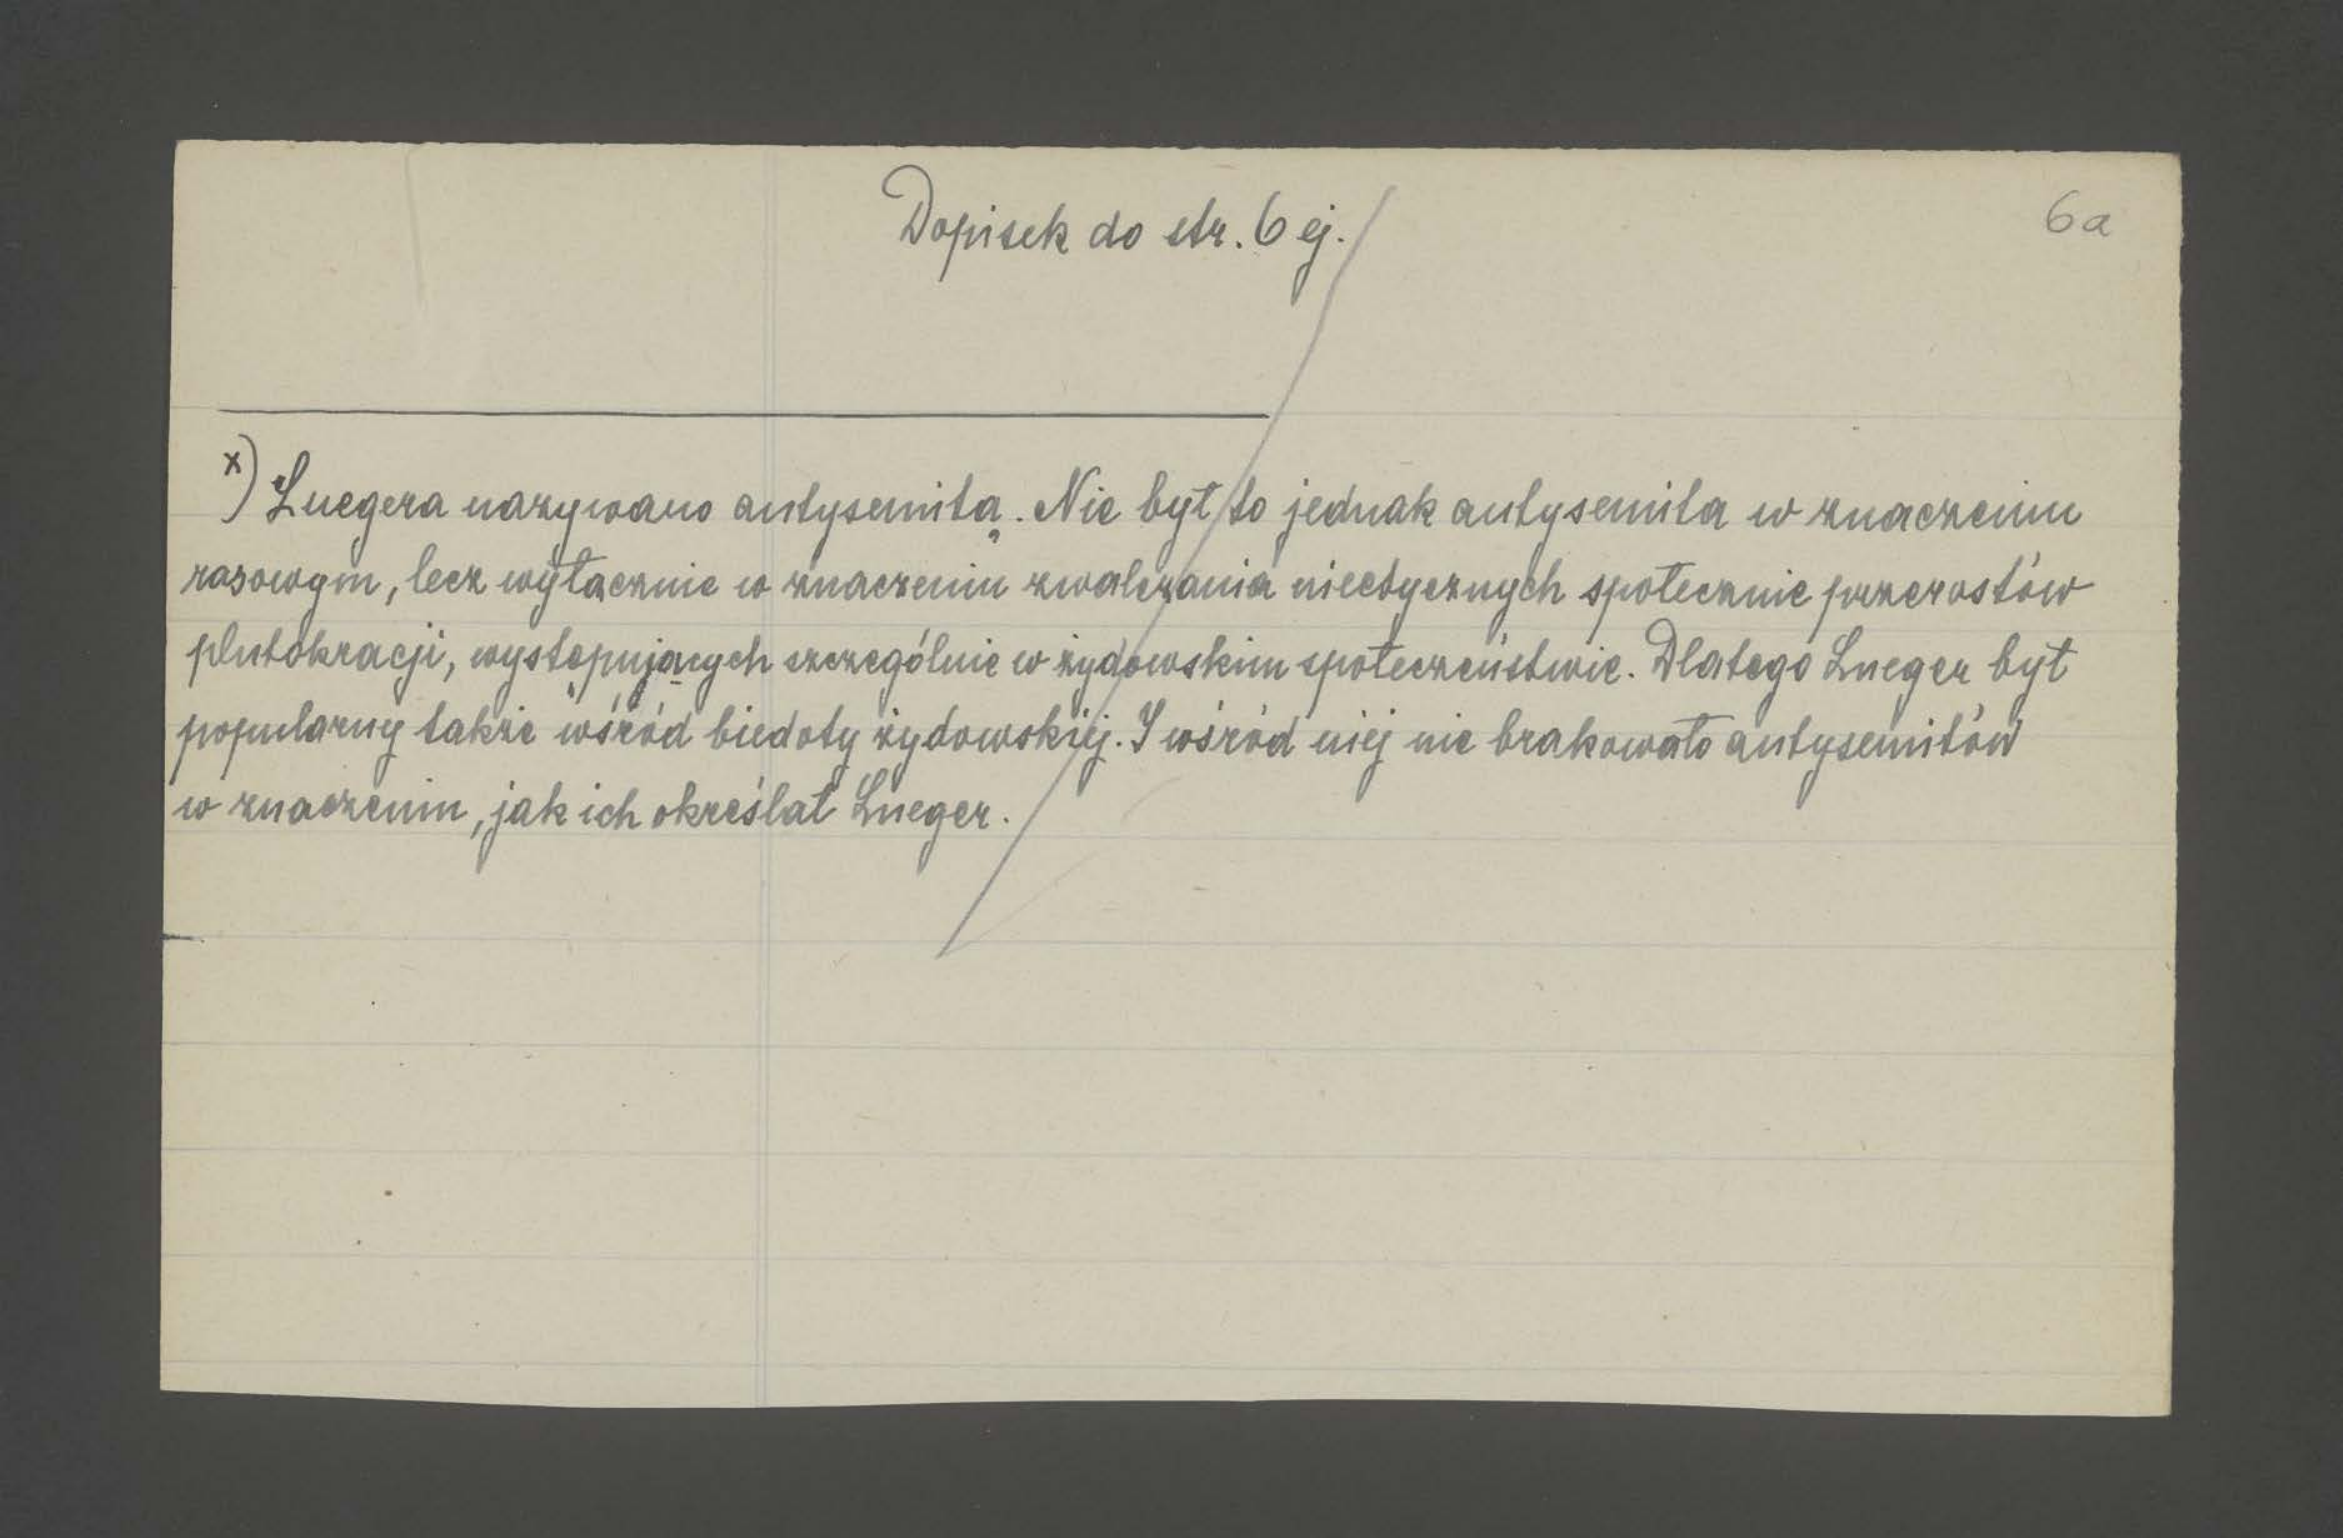 Dopisek do str. 6 ej.
6a
x) Luegera nazywano antysemitą. Nie był to jednak antysemita w znaczeniu
rasowym, lecz wyłącznie w znaczeniu zwalczania nieetycznych społecznie przerostów
plutokracji, występujących szczególnie w żydowskim społeczeństwie. Dlatego Lueger był
popularny także wśród biedoty żydowskiej. I wśród niej nie brakowało antysemitów
w znaczeniu, jak ich określał Lueger.